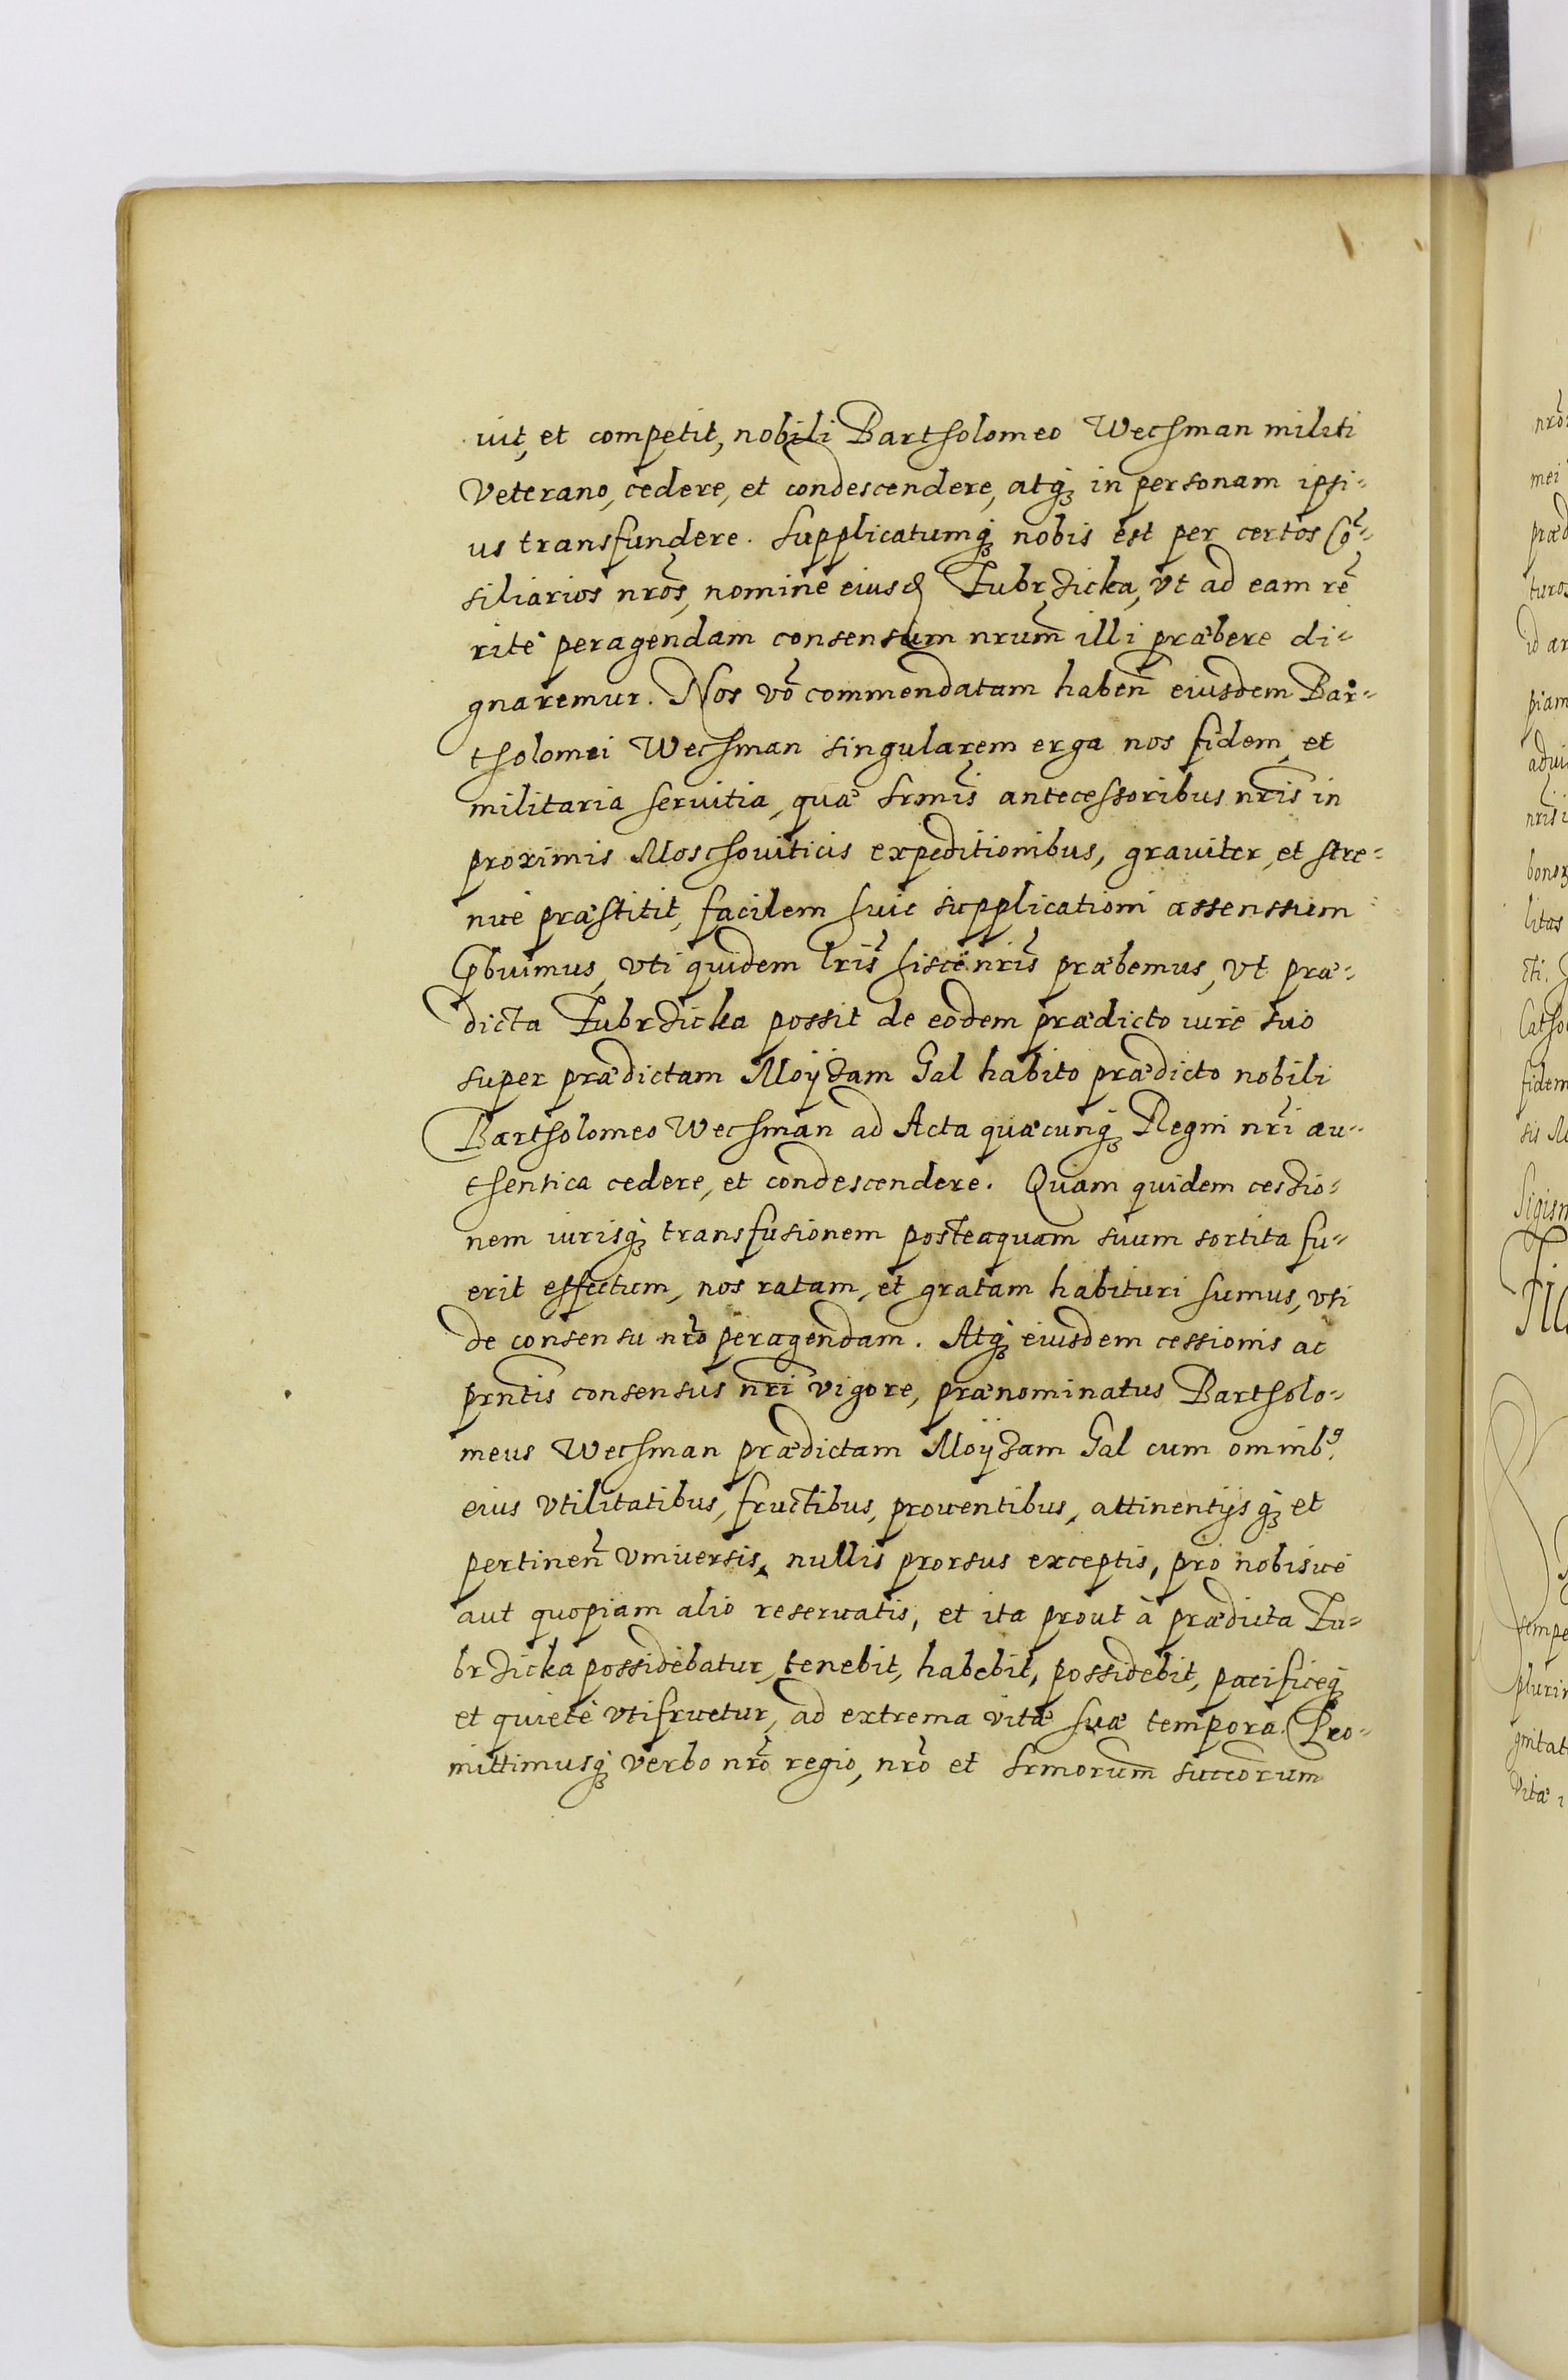 uit, et competit, nobili Bartholomeo Wechman militi
Veterano, cedere, et condescendere, atq; in personam ipsi-
us transfundere. Supplicatumq; nobis est per certos Cō-
siliarios nr̃os, nomine eiusd Zubrzicka, vt ad eam rē
ritè peragendam consensum nrum̃ illi præbere di-
gnaremur. Nos vō commendatam haben̄ eiusdem Bar-
tholomei Wechman singularem erga nos fidem, et
militaria seruitia, quæ Srmis̄ antecessoribus nris̄ in
proximis Moschouiticis expeditionibus, grauiter, et stre-
nuè præstitit, facilem huic supplicationi assenssum
p̄buimus, vti quidem lris̄ hiscē nris̄ præbemus, vt præ-
dicta Zubrzicka possit de eodem prædicto iure suo
super prædictam Moÿzam Gal habito prædicto nobili
Bartholomeo Wechman ad Acta quæcunq; Regni nr̃i au-
thentica cedere, et condescendere. Quam quidem cessio-
nem iurisq; transfusionem posteaquam suum sortita fu-
erit effectum, nos ratam, et gratam habituri sumus, vti
de consensu nr̃o peragendam. Atq; eiusdem cessionis ac
prntis̄ consensus nr̃i vigore, prænominatus Bartholo-
meus Wechman prædictam Moÿzam Gal cum omnib9
eius vtilitatibus, fructibus, prouentibus, attinentijsq; et
pertinen̄ vniuersis, nullis prorsus exceptis, pro nobisue
aut quopiam alio reseruatis, et ita prout à prædicta Zu-
brzicka possidebatur, tenebit, habebit, possidebit, pacificeq;
et quietè vtifruetur, ad extrema vitæ suæ tempora. Pro-
mittimusq; verbo nr̃o regio, nr̃o et Srmorum̃ succōrum